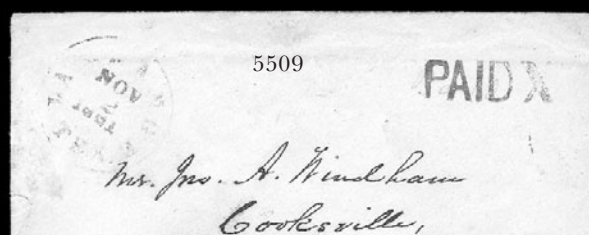 5509
PAID X
NOV
Mr. Jno. A. Windham
Cooksville,